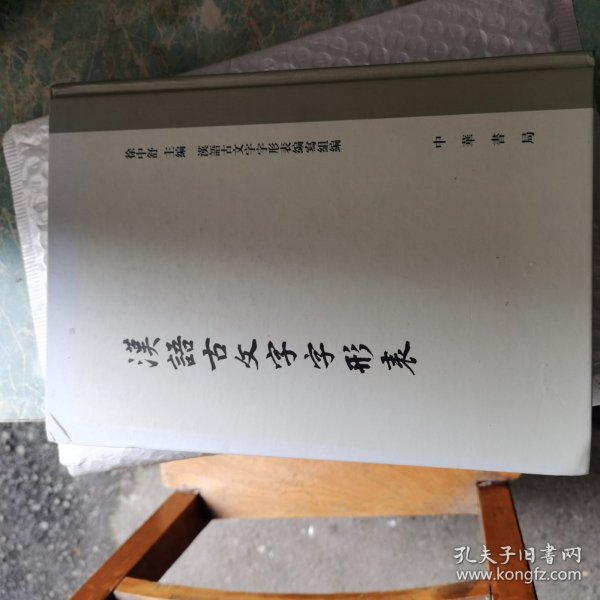 徐中舒 主編 漢語古文字字形表編寫組編
中華書局
漢語古文字字形表
孔夫子旧书网
www.kongfz.com